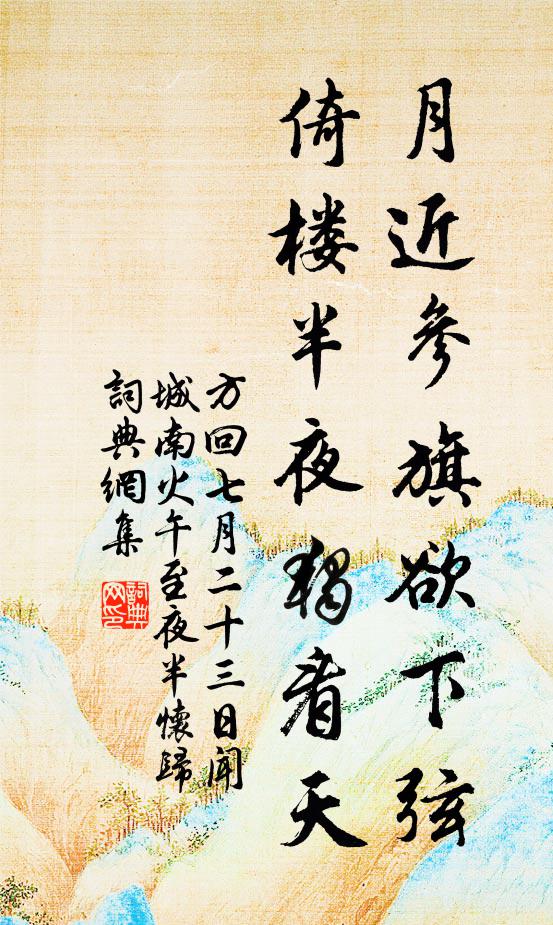 月近參旗欲下弦
倚楼半夜独看天
方回七月二十三日闻
城南火午至夜半懷歸
詞典網集
詞典
网印